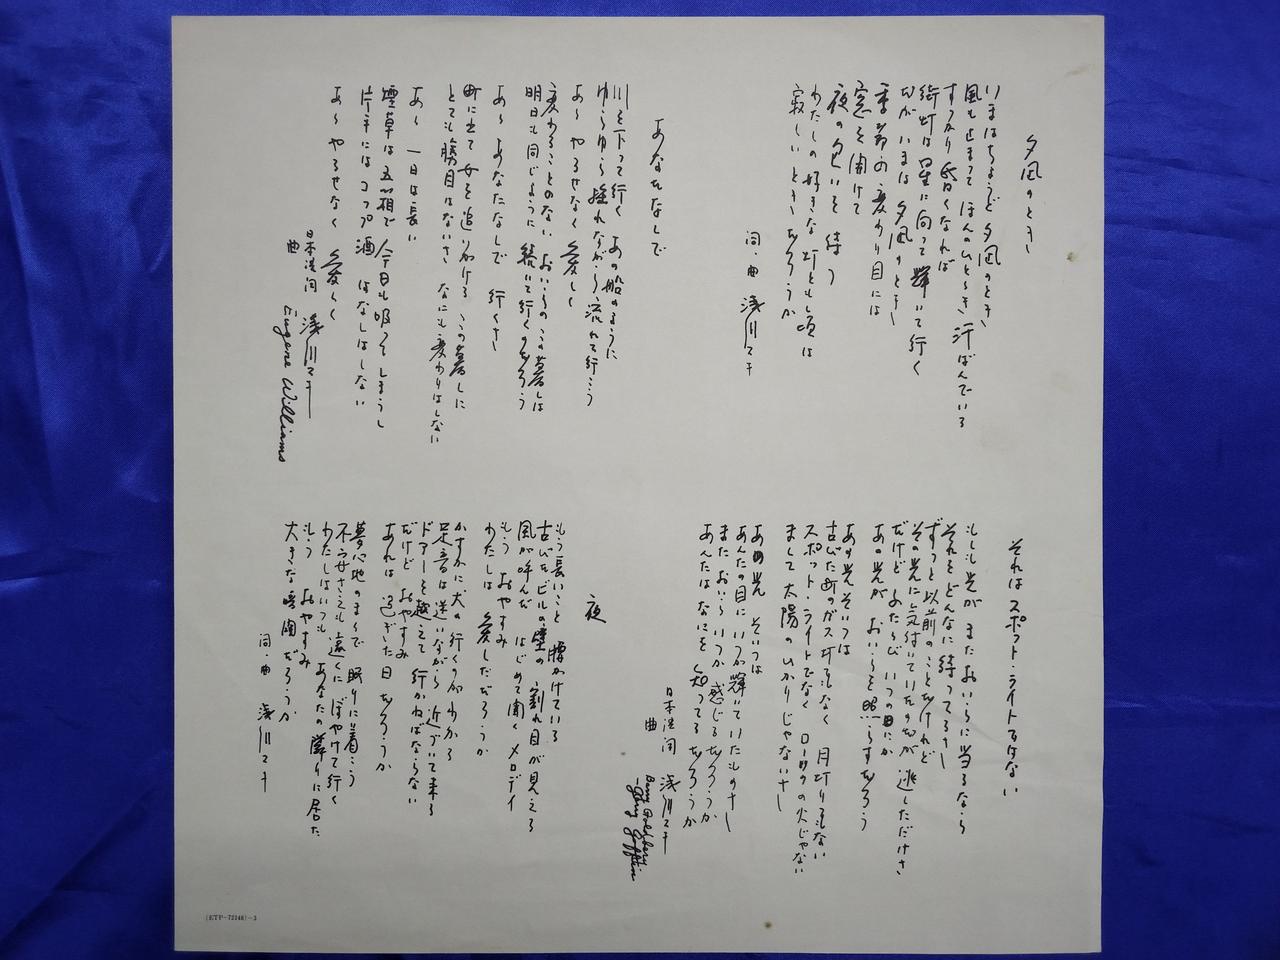 夕凪のとき
いまはちょうど 夕凪のとき
風も止まって ほんのひととき 汗ばんでいる
すっかり 暗くなれば
街灯は 星に向って 輝いて行く
だが いまは 夕凪のとき
季節の変わり目には
窓を開けて
夜の匂いを 待つ
わたしの好きな 灯ともし頃は
寂しいときだろうか
詞・曲 浅川マキ
あなたなしで
川を下って行く あの船のように
ゆらゆら 揺れながら 流れて行こう
あゝ やるせなく 愛しく
変わることのない おいらのこの暮しは
明日も同じように 続いて行くのだろう
あゝ あなたなしで 行くさ
町に出て 女を追いかける この暮しに
とても勝目はないさ なにも変わりはしない
あゝ 一日は長い
煙草は 五箱で 今日も吸ってしまうし
片手には コップ酒 はなしはしない
あゝ やるせなく 愛しく
日本語詞 浅川マキ
曲 Eugene Williams
それはスポット・ライトではない
もしも光が またおいらに当るなら
それをどんなに 待ってるさ
ずっと以前のことだけれど
その光に 気付いていたのだが 逃しただけさ
だけど ふたたび いつの日にか
あの光が おいらを照らすだろう
あの光 そいつは
古びた町の ガス灯でもなく 月灯りでもない
スポット・ライトでなく ローソクの火じゃない
まして 太陽の ひかりじゃないさ
あの光 そいつは
あんたの目に いつか輝いていたものさ
また おいら いつか 感じるだろうか
あんたは なにを 知ってるだろうか
日本語詞 浅川マキ
曲 Barry Goldberg
-Gerry Goffin
夜
もう長いこと 腰かけている
古びたビルの 壁の 割れ目が見える
風が呼んだ はじめて聞く メロディ
もう おやすみ
わたしは 愛しただろうか
かすかに 犬の行くのがわかる
足音は 迷いながら 近づいて来る
ドアーを 越えて 行かねばならない
だけど おやすみ
あれは 過ぎた日だろうか
夢心地のままで 眠りに着こう
不幸せさえも 遠くに ぼやけて行く
わたしはいつも あなたの隣りに居た
もう おやすみ
大きな暗闇だろうか
詞・曲 浅川マキ
(ETP-72246)-3